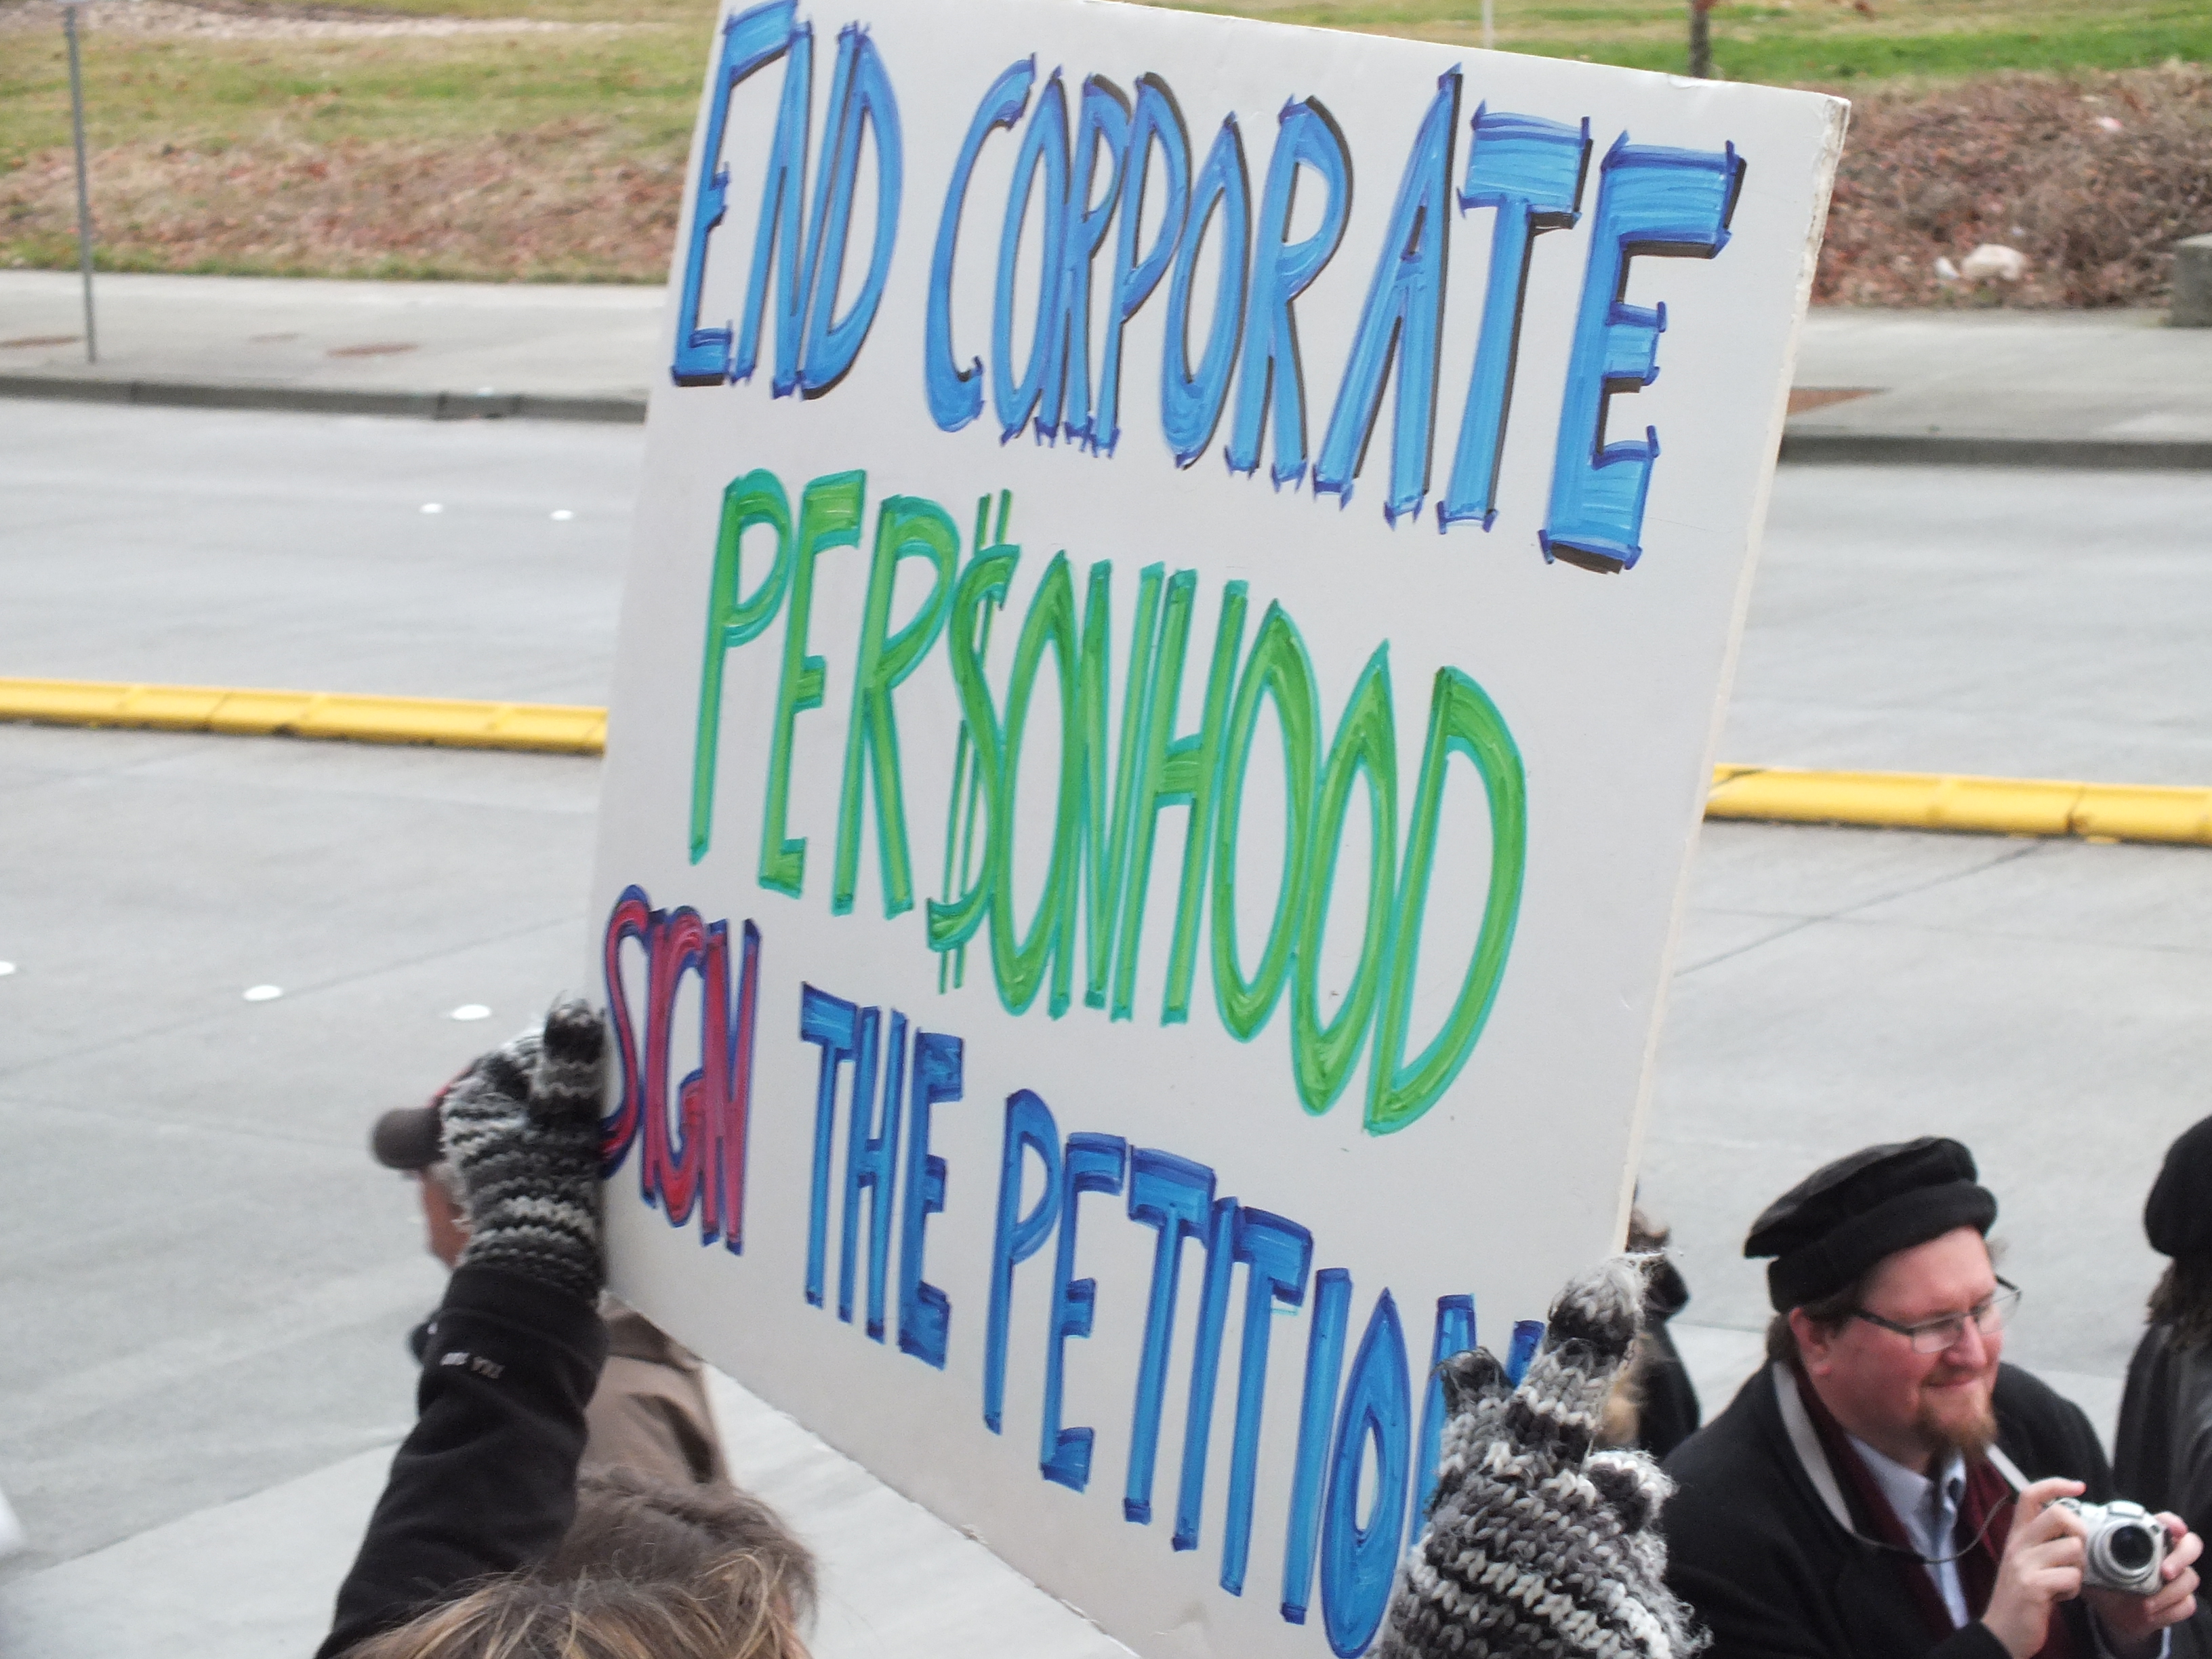 END CORPORATE
PER$ONHOOD
SIGN THE PETITION